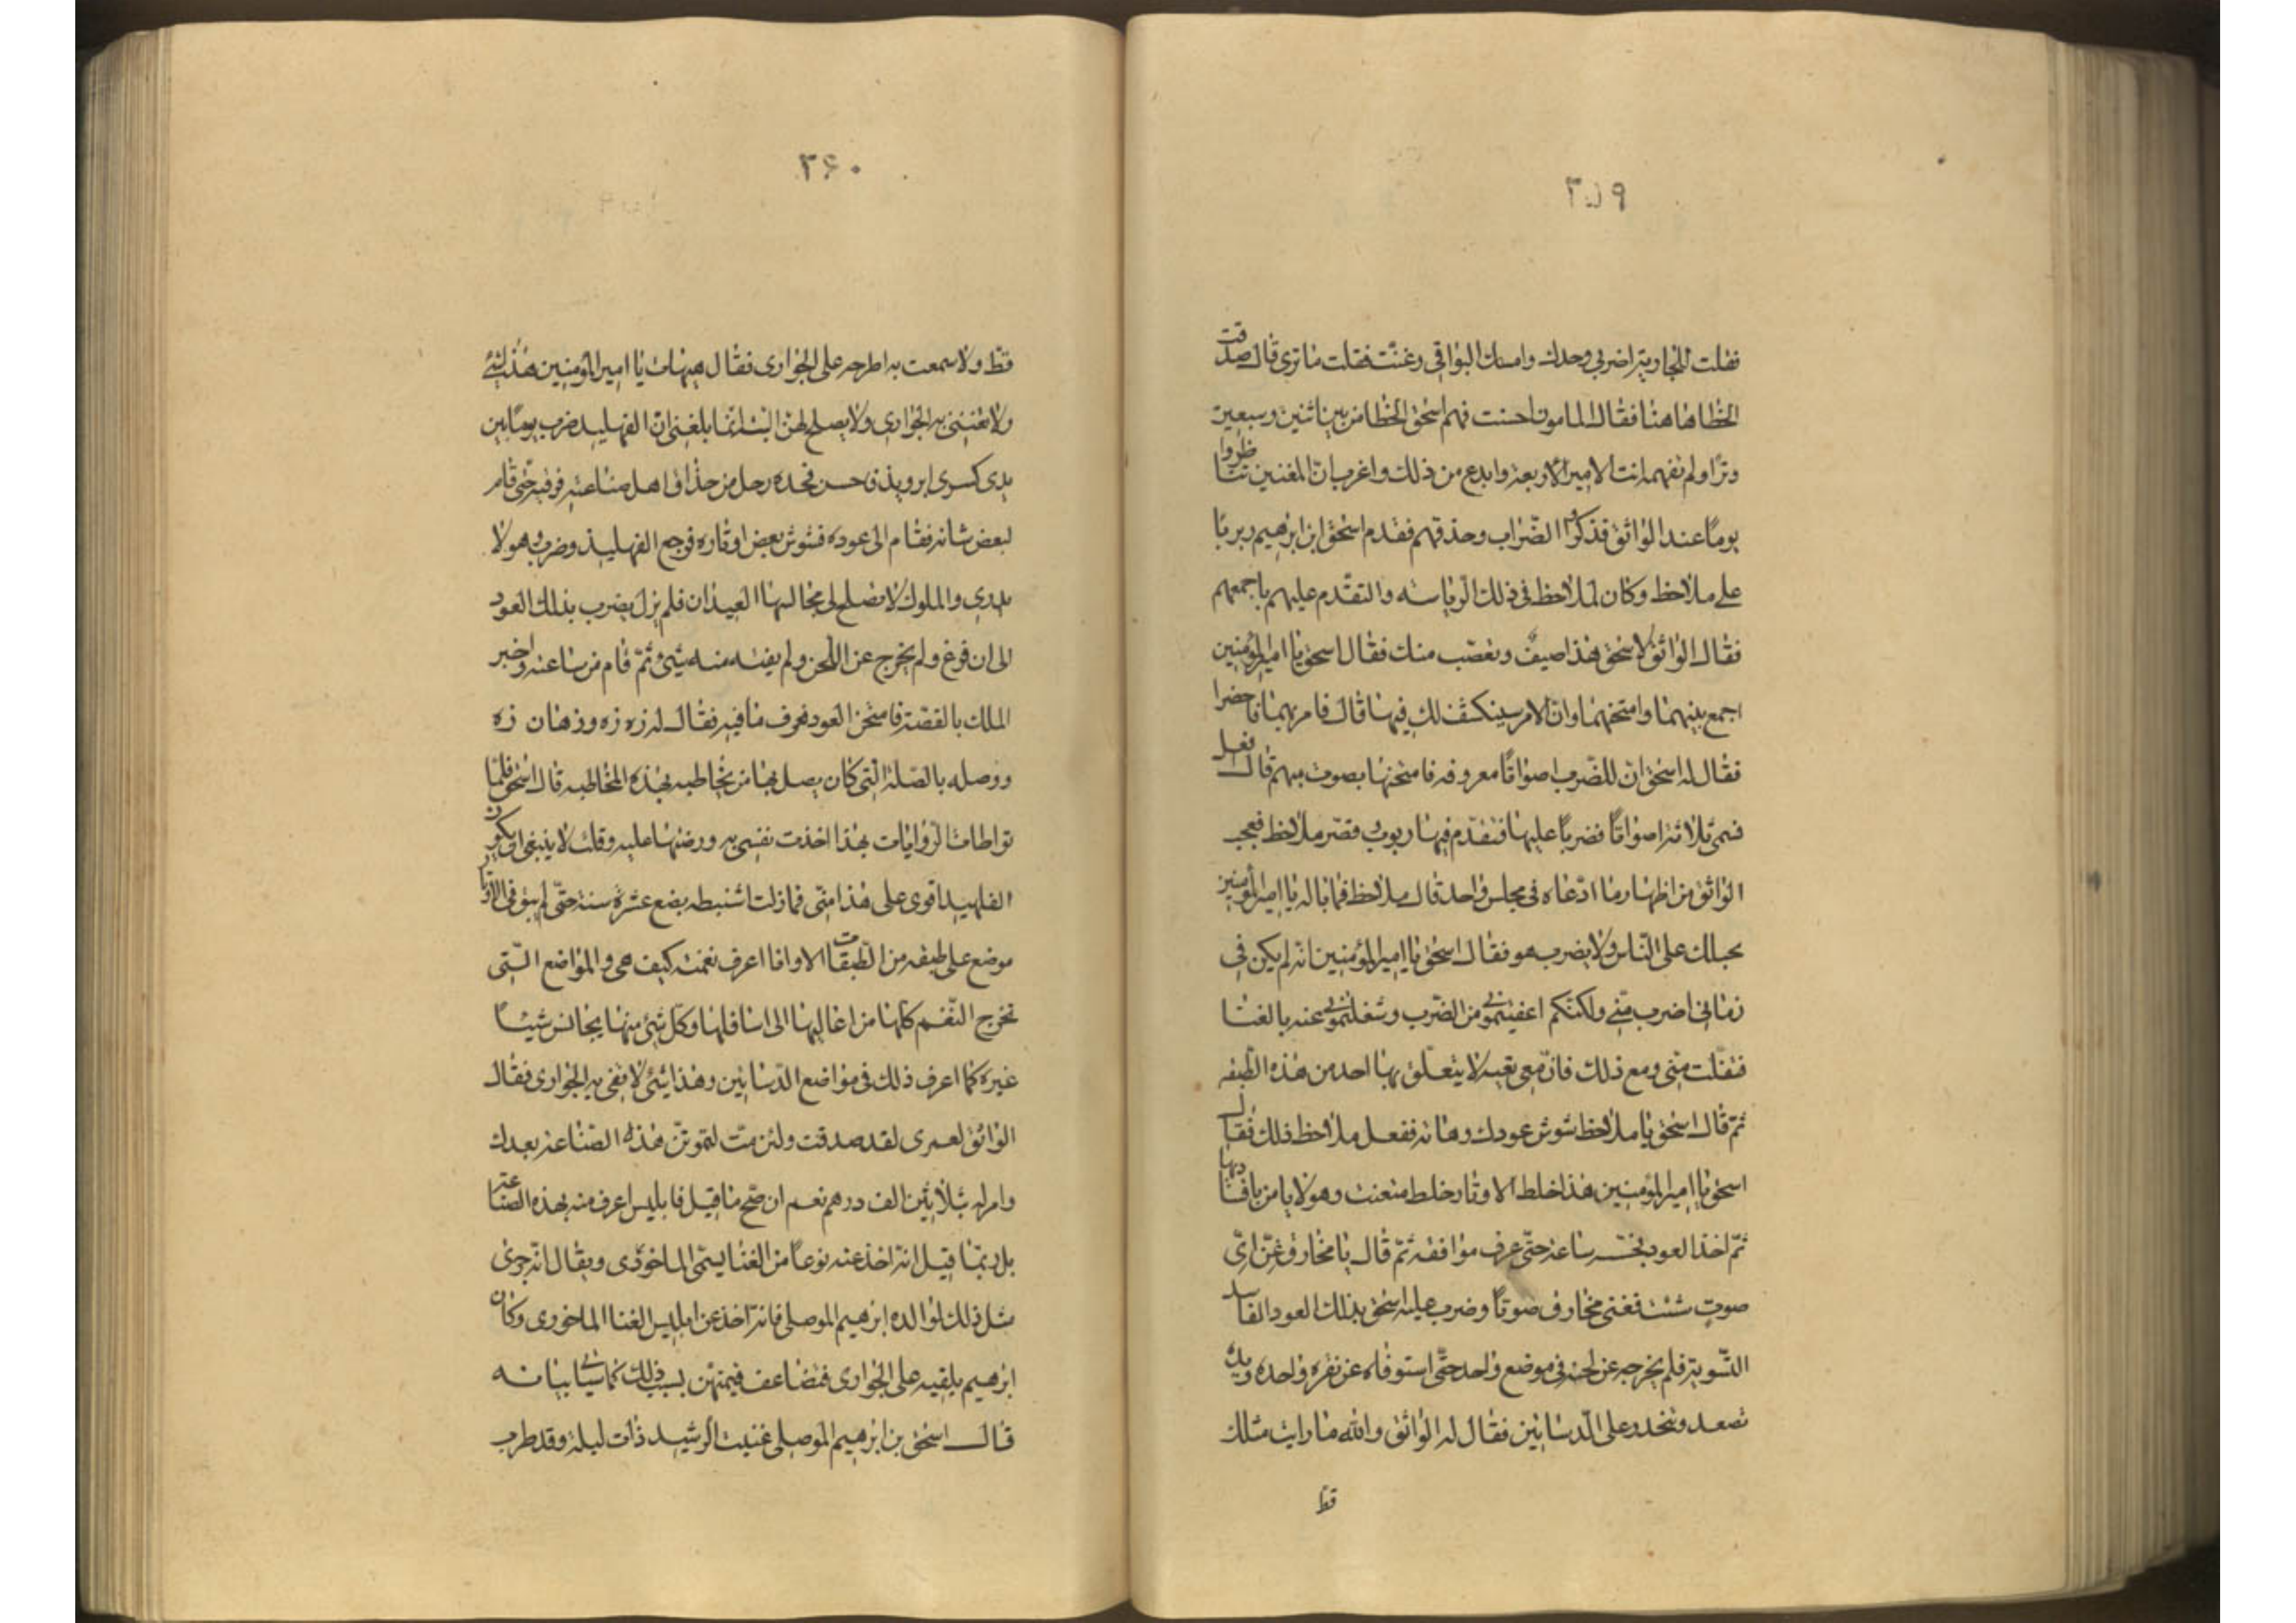 ٣٥٩
فقلت للجارية اضربي وحدك وامسك البواقي وغنّت فقلت ما ترى قال صدقت
الخطا هاهنا فقال المامون احسنت فهم اسحق الخطا من بين اثنين وسبعين
وترًا ولم تفهمه انت الا من اربعة وابدع من ذلك واغرب انّ المغنين تناظروا
يومًا عند الواثق فذكروا الضّراب وحذقهم فقدم اسحق ابن ابرهيم ربربًا
على ملاحظ وكان لملاحظ في ذلك الرياسه والتقدّم عليهم باجمعهم
فقال الواثق لاسحق هذا حيف وتعصّب منك فقال اسحق يا امير المؤمنين
اجمع بينهما وامتحنهما وانّ الامر سينكشف لك فيهما قال فامر بهما فاحضرا
فقال له اسحق انّ للضّرب اصواتًا معروفه فامتحنها بصوت منهم قال افعل
فسمّى ثلاثة اصواتًا فضربا عليها فتقدّم فيها ربرب وقصّر ملاحظ فعجب
الواثق من اظهار ما ادّعاه في مجلس واحد قال ملاحظ فما باله يا امير المؤمنين
يحيلك على النّاس ولا يضرب هو فقال اسحق يا امير المؤمنين انه لم يكن في
زماني اضرب منّي ولكنّكم اعفيتموني من الضّرب وشغلتموني عنه بالغنا
فتفلّت منّي ومع ذلك فانّ معي بقيه لا يتعلّق بها احد من هذه الطّبقه
ثمّ قال اسحق يا ملاحظ شوش عودك وهاته ففعل ملاحظ ذلك فقال
اسحق يا امير المؤمنين هذا خلط الاوتار خلط متعنت وهو لا يامن بافسادها
ثمّ اخذ العود فجسّه ساعة حتّى عرف مواقفه ثمّ قال يا مخارق غنّ ايّ
صوتٍ شئت فغنى مخارق صوتًا وضرب عليه اسحق بذلك العود الفاسد
التّسوية فلم يخرجه عن لحنه في موضع واحد حتّى استوفاه عن نقره واحده ويده
تصعد وتنحدر على الدّساتين فقال له الواثق والله ما رايت مثلك
قط
٣۶٠
قطّ ولا سمعت به اطرحه على الجواري فقال هيهات يا امير المؤمنين هذا شئ
ولا تغنينى به الجواري ولا يصلح لهنّ البته انّما بلغني انّ الفهليد ضرب يومًا بين
يدى كسرى ابرويذ فاحسن فحسده رجل من حذّاق اهل صناعته فرقبه حتّى قام
لبعض شانه فقام الى عوده فشوش بعض اوتاره فرجع الفهليذ وضرب وهو لا
يدري والملوك لا تصلح في مجالسها العيدان فلم يزل يضرب بذلك العود
الى ان فرغ ولم يخرج عن اللّحن ولم يفته منه شئ ثمّ قام من ساعته واخبر
الملك بالقصّة فامتحن العود فعرف ما فيه فقال له زه زه وزهان زه
ووصله بالصّلة الّتي كان يصل بها من يخاطبه بهذه المخاطبه قال اسحق فلمّا
تواطات الرّوايات بهذا اخذت نفسي به ورضتها عليه وقلت لا ينبغى ان يكون
الفلهيد اقوى على هذا منّى فما زلت استنبطه بضع عشرة سنة حتّى لم يبق في الاوتار
موضع على طبقه من الطّبقات الا وانا اعرف نغمته كيف هي والمواضع الّتي
تخرج النّغم كلّها من اعاليها الى اسافلها وكلّ شئ منها يجانس شيئًا
غيره كما اعرف ذلك في مواضع الدّساتين وهذا شئ لا تفي به الجوارى فقال
الواثق لعمرى لقد صدقت ولئن متّ لتموتنّ هذه الصّناعة بعدك
وامر له بثلاثين الف درهم نعم ان صحّ ما قيل فابليس اعرف منه بهذه الصّناعة
بل ربّما قيل انّه اخذ عنه نوعًا من الغنا يسمّى الماخورى ويقال انّه جرى
مثل ذلك لوالده ابرهيم الموصلي فانّه اخذ عن ابليس الغنا الماخورى وكان
ابرهيم يلقيه على الجوارى فتضاعف قيمتهن بسبب ذلك كما سياتي بيانه
قال اسحق بن ابرهيم الموصلي غنيت الرشيد ذات ليلة وقد طرب